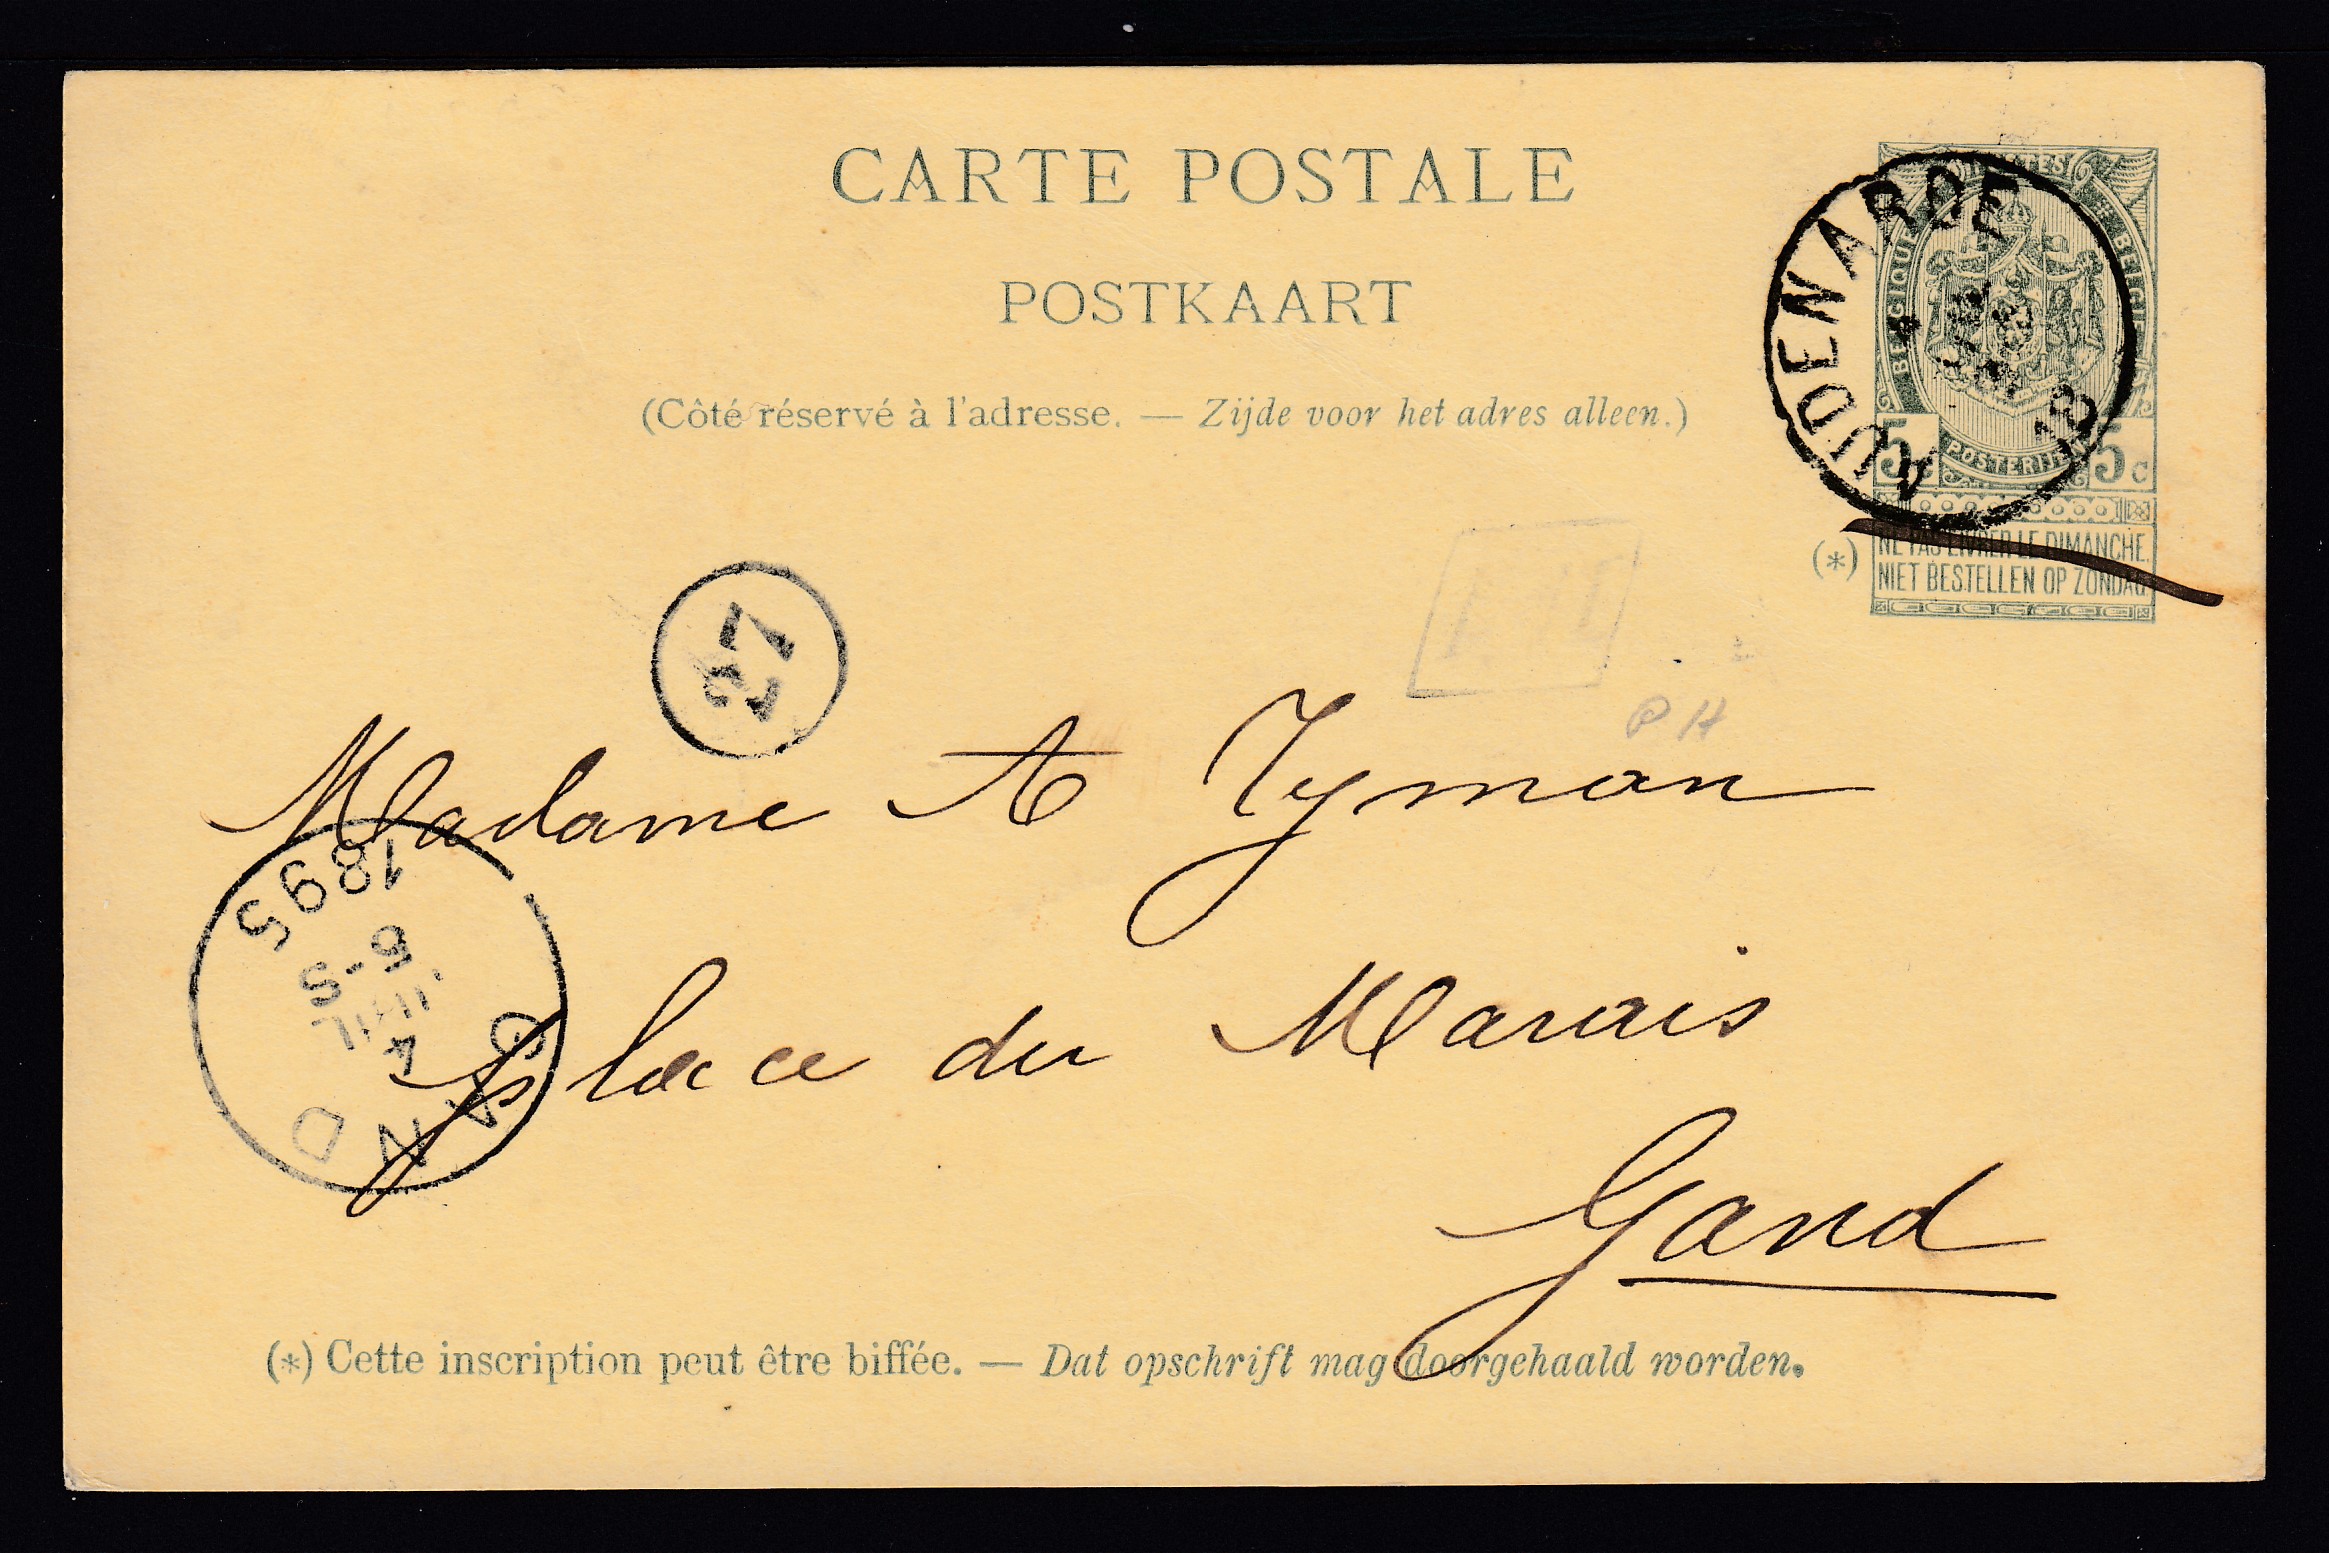 CARTE POSTALE
POSTKAART
(Côté réservé à l'adresse. — Zijde voor het adres alleen.)
POSTES
BELGIQUE BELGIË
POSTERIJEN
5c 5c
AUDENARDE
18
(*) NE PAS LIVRER LE DIMANCHE.
NIET BESTELLEN OP ZONDAG.
27
PH
Madame A Tyman
1895
5-S
JUIL
4
GAND
place du Marais
Gand
(*) Cette inscription peut être biffée. — Dat opschrift mag doorgehaald worden.